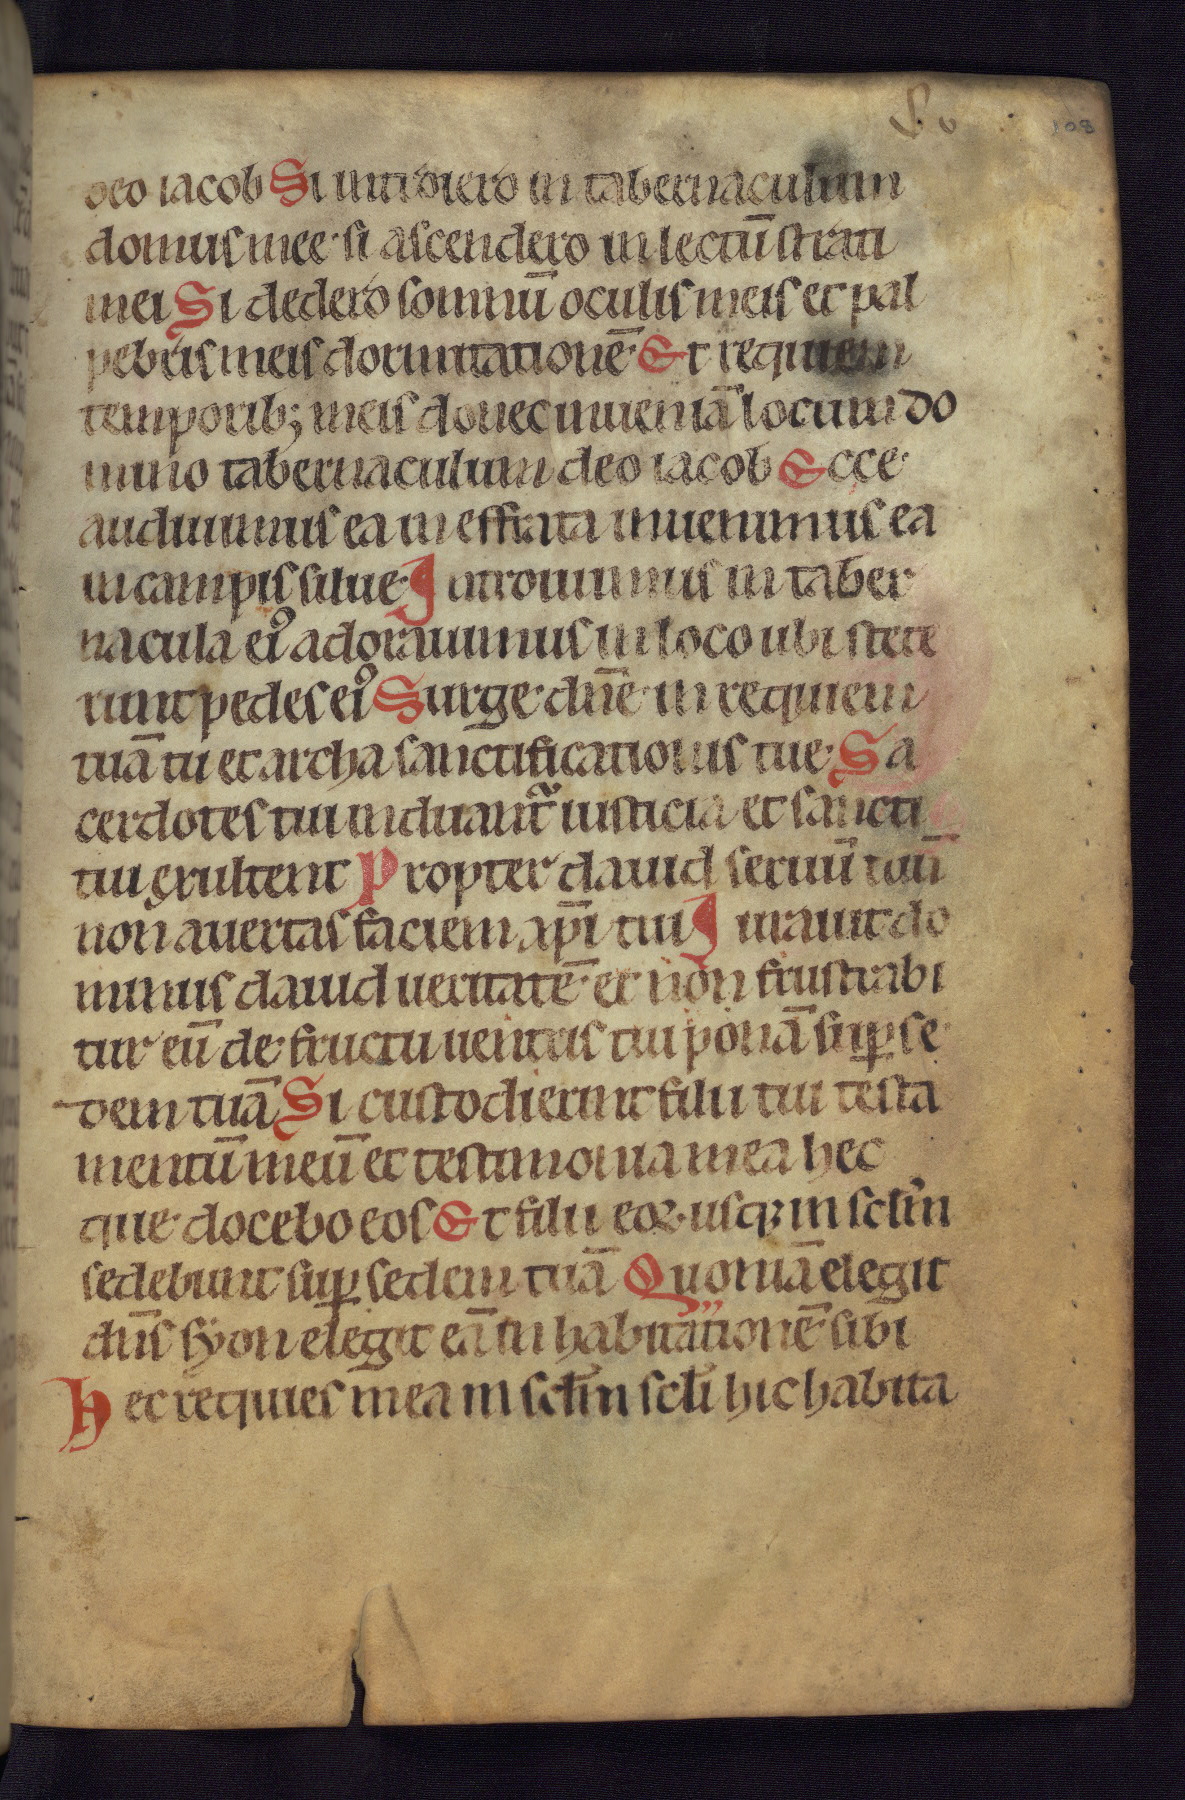 108
deo iacob Si introiero in tabernaculum
domus mee · si ascendero in lectū strati
mei Si dedero somnū oculis meis et pal
pebris meis dormitationē · Et requiem
temporib; meis donec inueniā locum do
mino tabernaculum deo iacob Ecce ·
audiuimus ea in effrata inuenimus ea
in campis silue · Introiuimus in taber
nacula eiꝰ adorauimus in loco ubi stete
runt pedes eiꝰ Surge · dn̄e · in requiem
tuā tu et archa sanctificationis tue · Sa
cerdotes tui induant᷑ iusticia et sancti
tui exultent Propter dauid seruū tuū
non auertas faciem xp̄i tui Iurauit do
minus dauid ueritatē · et non frustrabi
tur eū de · fructu uentris tui ponā suꝑ se
dem tuā Si custodierint filii tui testa
mentū meū et testimonia mea hec
que · docebo eos Et filii eoꝝ · usqꝫ in sclm̄
sedebunt suꝑ sedem tuā Quoniā elegit
dn̄s syon elegit eā in habitationē sibi
Hec requies mea in sclm̄ scli̅ hic habita